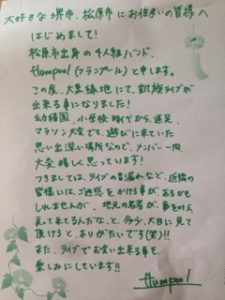 大好きな堺市、松原市にお住まいの皆様へ
はじめまして!
松原市出身の4人組バンド、
flumpool(フランプール)と申します。
この度、大泉緑地にて、凱旋ライブが
出来る事になりました!
幼稚園、小学校時代から、遠足、
マラソン大会でも、遊びに来ていた
思い出深い場所なので、メンバー一同、
大変嬉しく思っています!
つきましては、ライブの音漏れなど、近隣の
皆様には、ご迷惑をかける事が、あるかも
しれませんが、地元の若者が、夢を叶え
て来てるんだな、と、多少、大目に見て
頂けると、ありがたいです(笑)!!
また、ライブでお会い出来る事も、
楽しみにしています!!
flumpool